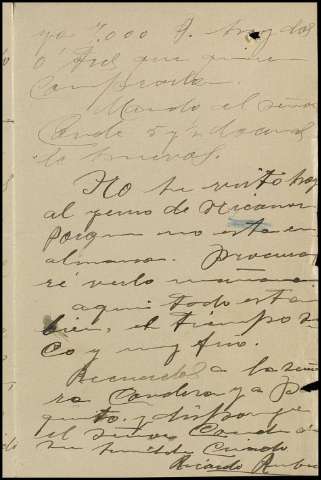 ya 7.000 q. hay dos
ó tres que quieren
comprarla.
Mando al señor
Conde 5 y ½ docenas
de huevos.
No he visto hoy
al yerno de Nicanor
porque no esta en
almansa. Procura
ré verlo mañana
aqui todo esta
bien, el tiempo se
co y muy frio.
Recuerdos a la seño
ra Condesa y a Pa
quito, y disponga
el señor Conde de
su humilde Criado
Ricardo Rubio